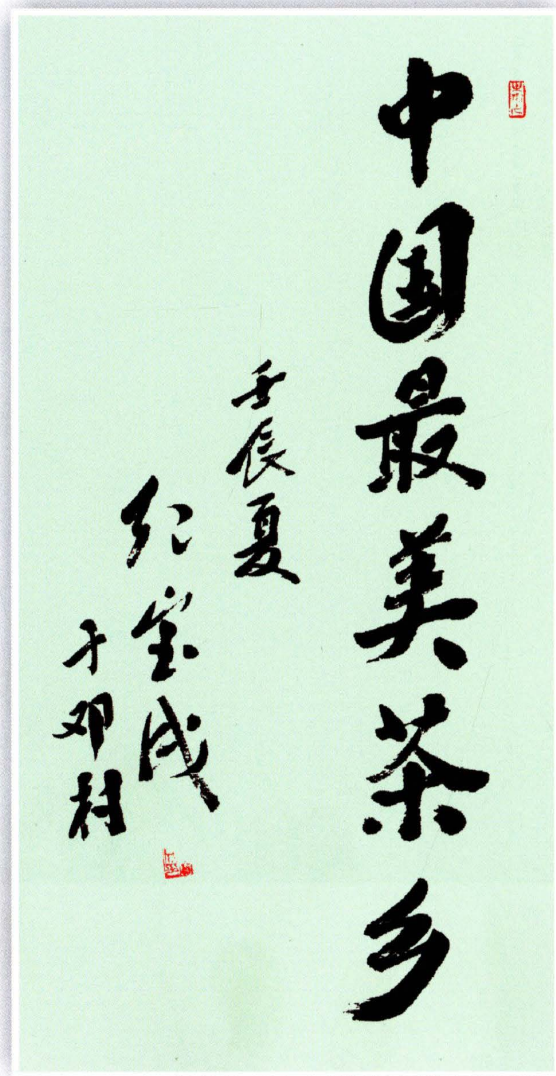 中国最美茶乡
壬辰夏
纪宝成
于邓村